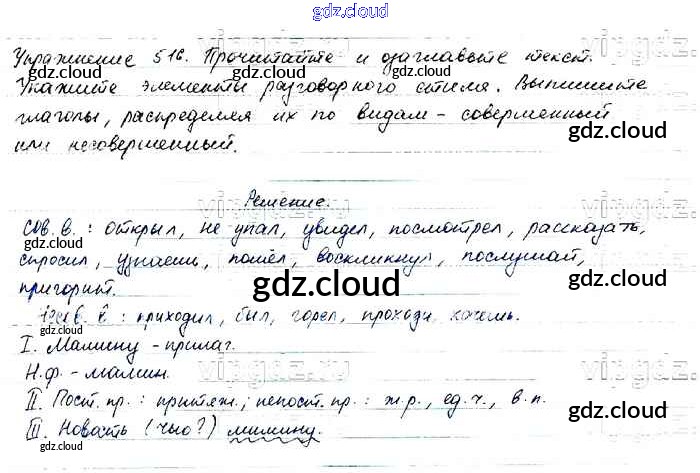 gdz.cloud
Упражнение 516. Прочитайте и озаглавьте текст.
gdz.cloud
Укажите элементы разговорного стиля. Выпишите
gdz.cloud
глаголы, распределяя их по видам – совершенный
gdz.cloud
или несовершенный.
gdz.cloud
Решение.
Сов. в.: открыл, не упал, увидел, посмотрел, рассказать,
gdz.cloud
спросил, узнаешь, пошёл, воскликнул, послушай,
gdz.cloud
пригорит.
gdz.cloud
Несов. в: приходил, был, горел, проходи, хочешь.
I. Мамину – прилаг.
gdz.cloud
Н.ф. – мамин.
II. Пост. пр.: притяж., непост. пр.: ж.р., ед.ч., в.п.
gdz.cloud
III. (чью?) мамину.
gdz.cloud